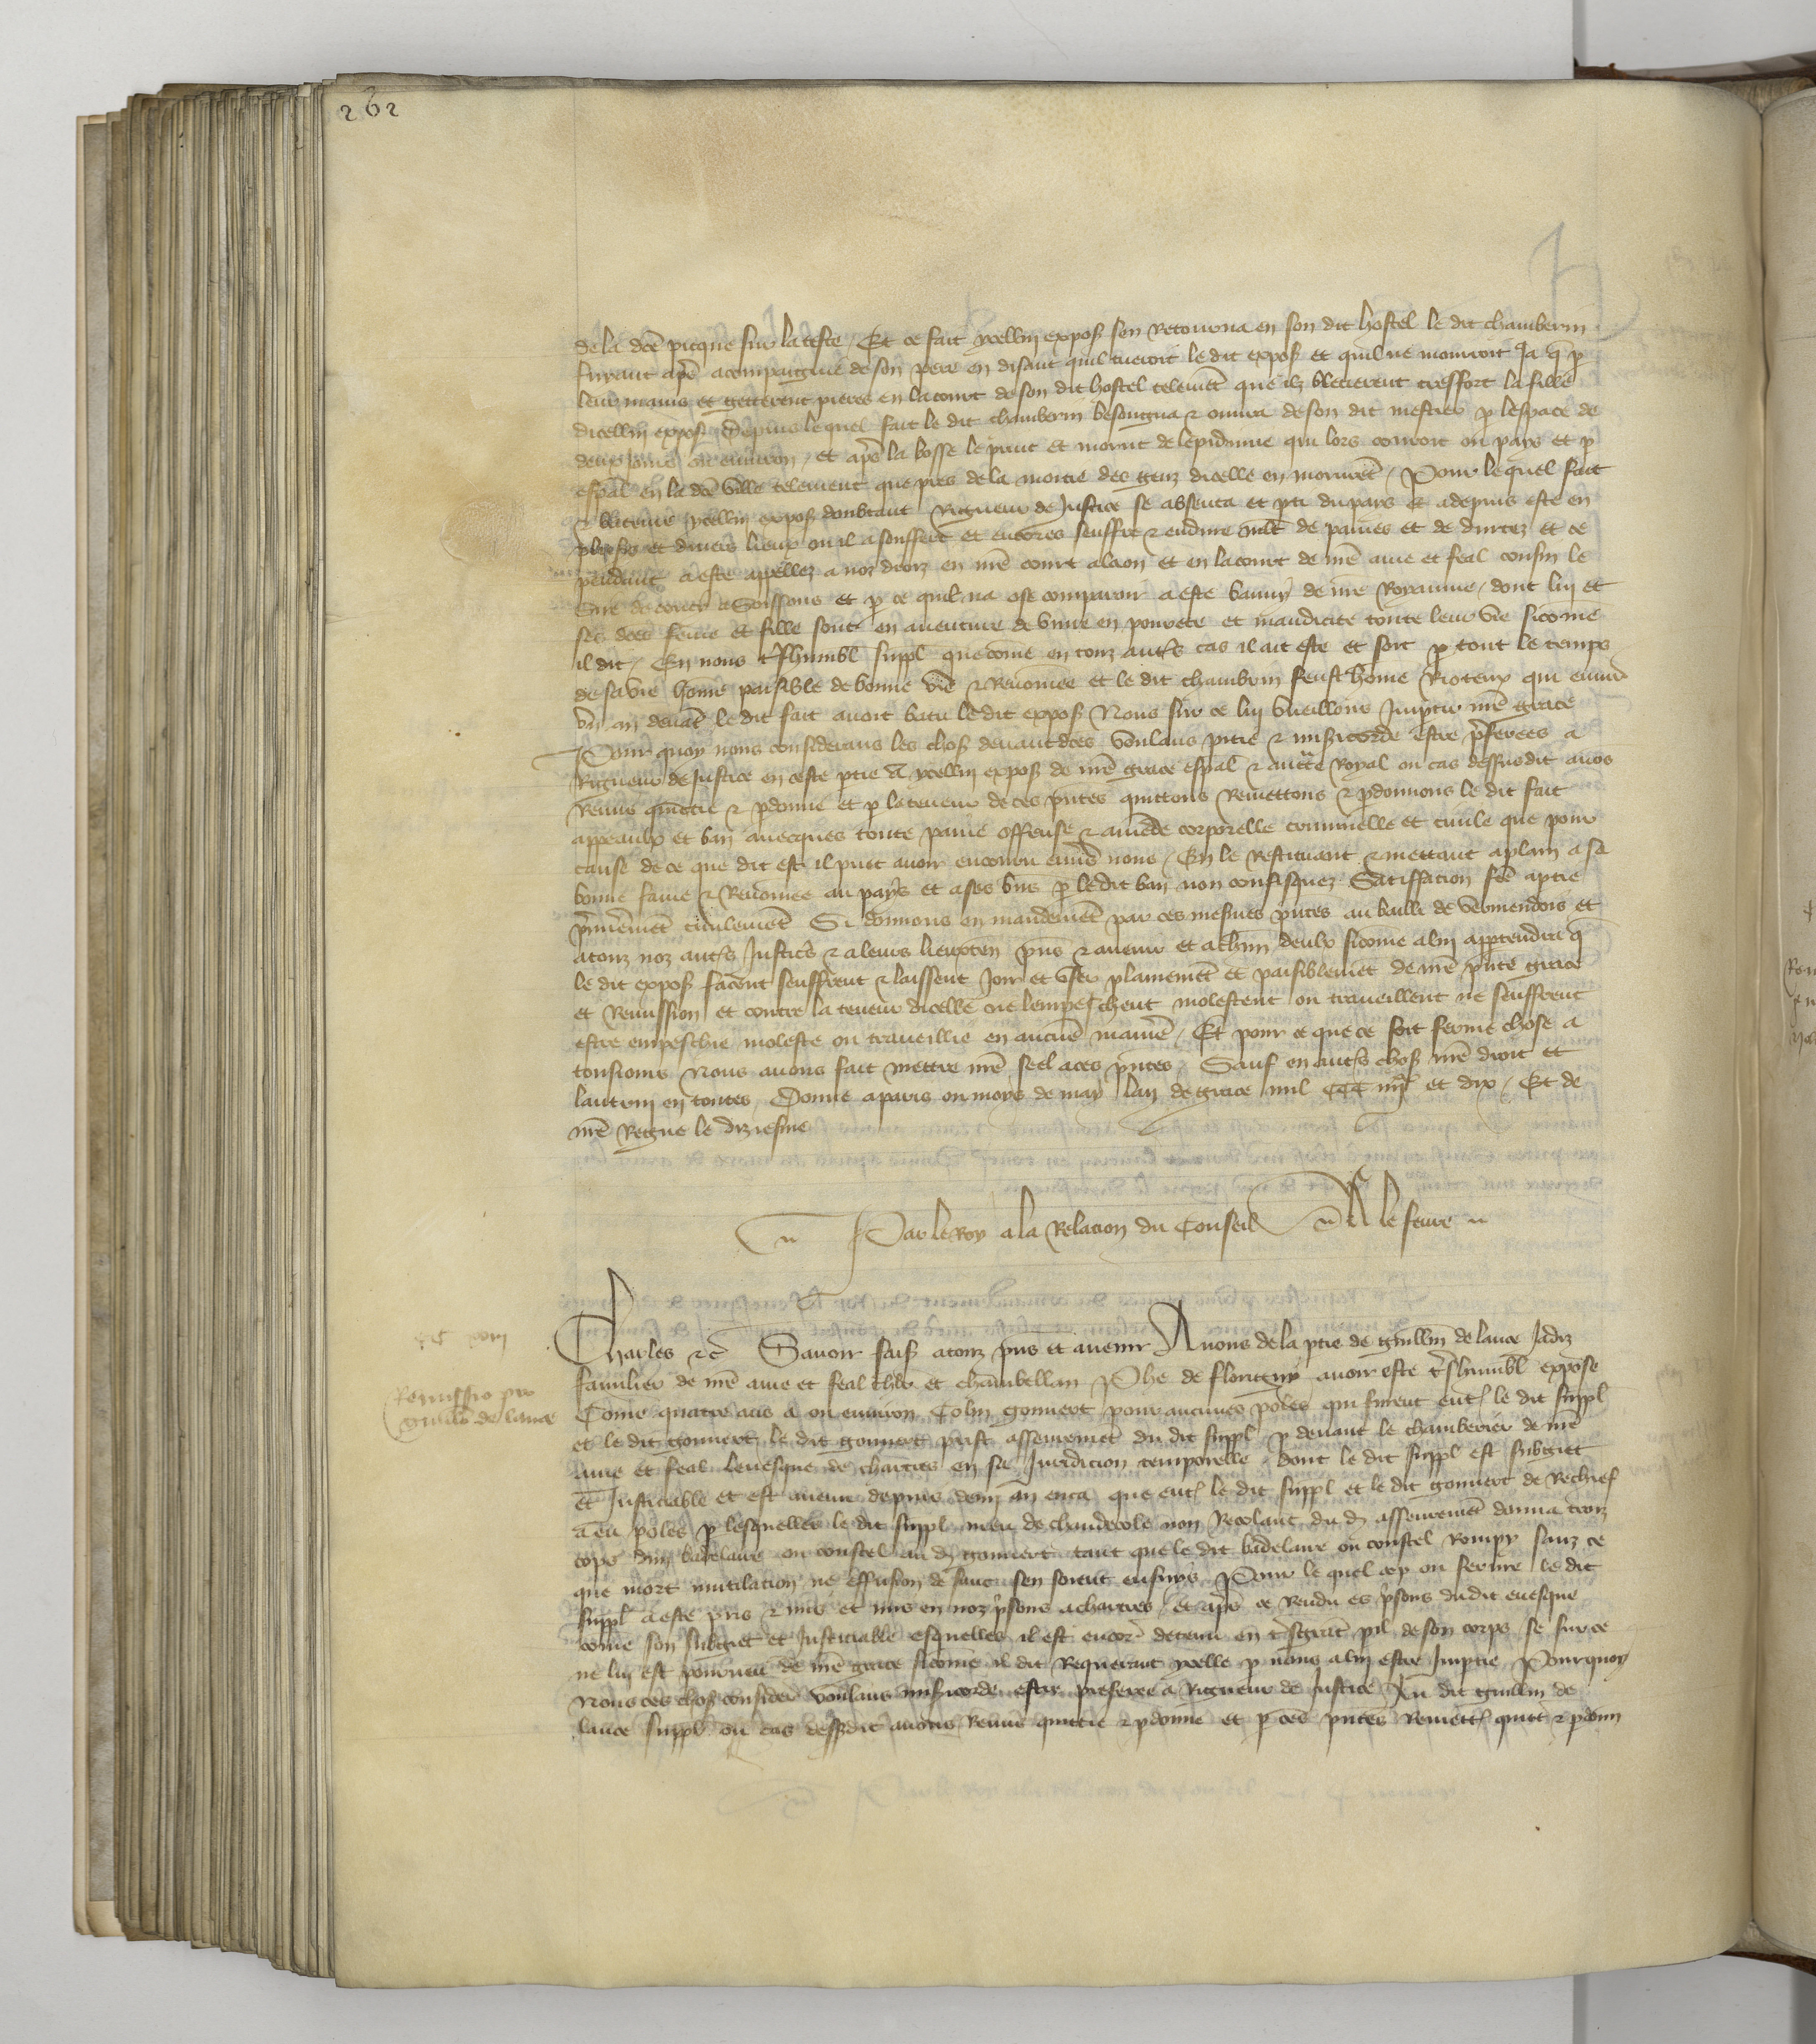 262
de la dce picque sur la teste / Et ce fait ycellui expos sen retourna en son dit hostel le dit chamberin
suivant apres acompaignie de son pere en disant quil tueroit le dit expos et quil ne mourroit ja q p
leurs mains et getterent pierres en la court de son dit hostel telemet que ilz blecierent tresfort la fille
dicellui expos / Depuis lequel fait le dit chamberin besongna & ouvra de son dit mestier p lespace de
deux jours ou environ / et apres la bosse le print et morut de lepidimie qui lors couroit ou pays et p
espal en la dce ville telement que pres de la moitie des genz dicelle en morurent / Pour lequel fait
& bleceure ycellui expos doubtant rigueur de justice se absenta et pti du pays et a depuis este en
pluss et divers lieux ou il a souffert et encores seuffre & endure mlt de paines et de durtez et ce
pendant a este appellez a noz droiz en nre court a laon et en la court de nre ame et feal cousin le
Sire de coucy a Soissons et p ce quil na ose comparoir a este banny de nre Royaume / dont lui et
ses dces feme et fille sont en aventure de vivre en povrete et mandicite toute leur vie sicome
il dit / En nous treshumbl suppl que come en touz autres cas il ait este et soit p tout le temps
de sa vie home paisible de bonne vie & renomee et le dit chambrin feust home rioteux qui environ
un an devat le dit fait avoit batu le dit expos Nous sur ce lui vueillons impartir nre grace
Pour quoy nous considerans les choses devantdces voulans pitie & misericorde estre preferees a
rigueur de justice en ceste ptie A ycellui expos de nre grace espal & auctte Royal ou cas dessusdit avos
remis quictie & pdonne et p la teneur de ces pntes quittons remettons & pdonnons le dit fait
appeaulx et ban avecques toute paine offense & amede corporelle criminelle et civile que pour
cause de ce que dit est il puet avoir encouru envers nous / En le restituant & mettant a plain a sa
bonne fame & renomee au pays et a ses bns p le dit ban non confisquez Satiffacion fce a ptie
premieremet civilemet Si donnons en mandemet par ces mesmes pntes au bailli de vermendois et
a touz noz autres justicers & a leurs lieuxten pns & avenir et a chun deulx sicome a lui appartendra q
le dit expos facent seuffrent & laissent joir et user plainemet et paisiblemet de nre pnte grace
et remission et contre la teneur dicelle ne lempeschent molestent ou traveillent ne seuffrent
estre empeschie moleste ou traveillie en aucune maniere / Et pour ce que ce soit ferme chose a
tousiours Nous avons fait mettre nre seel a ces pntes / Sauf en autres choses nre droit et
lautrui en toutes / Donne a paris ou moys de may lan de grace mil CCC iiijxx et dix / Et de
nre Regne le dixiesme
Par le Roy a la relacion du Conseil Le fevre
Charles &c Savoir fais a touz pns et avenir Avons de la ptie de guillm de lance jadiz
familier de nre ame et feal chlr et chambellan Phe de florigny avoir este treshumbl expose
Remissio pro
guillo de lance
Come quatre ans a ou environ Colin gouvert pour aucunes poles qui furent entre le dit suppl
et le dit gouvert le dit gouvert prist asseuremet du dit suppl p devant le chamberier de nre
ame et feal levesque de chartres en sa juridicion temporelle / dont le dit suppl est subgiet
et justiciable et est avenu depuis demi an enca que entre le dit suppl et le dit gouvert de rechief
a eu poles p lesquelles le dit suppl meu de chaudecole non recolant du d asseuremet donna trois
cops dun badelaire ou coustel au d gouvert tant que le dit badelaire ou coustel rompy sanz ce
que mort mutilacion ne effusion de sanc sen soient ensuys Pour le quel cop ou ferure le dit
suppl a este pris & mis et mis en noz prisons a chartres / et apres ce rendu es prisons du dit evesque
come son subgiet et justiciable esquelles il est encores detenu en tresgrat pil de son corps se sur ce
ne lui est pourveu de nre grace sicome il dit requerant ycelle p nous a lui estre impartie Pourquoy
Nous ces choses consider voulans misericorde estre preferee a rigueur de justice Au dit guillm de
lance suppl ou cas dessusdit avons remis quictie & pdonne et p ces pntes remett quitt & pdonn